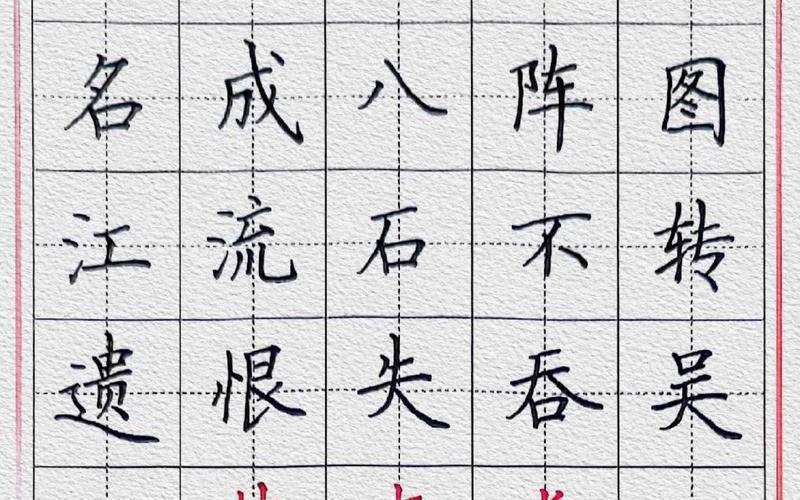 名成八阵图
江流石不转
遗恨失吞吴